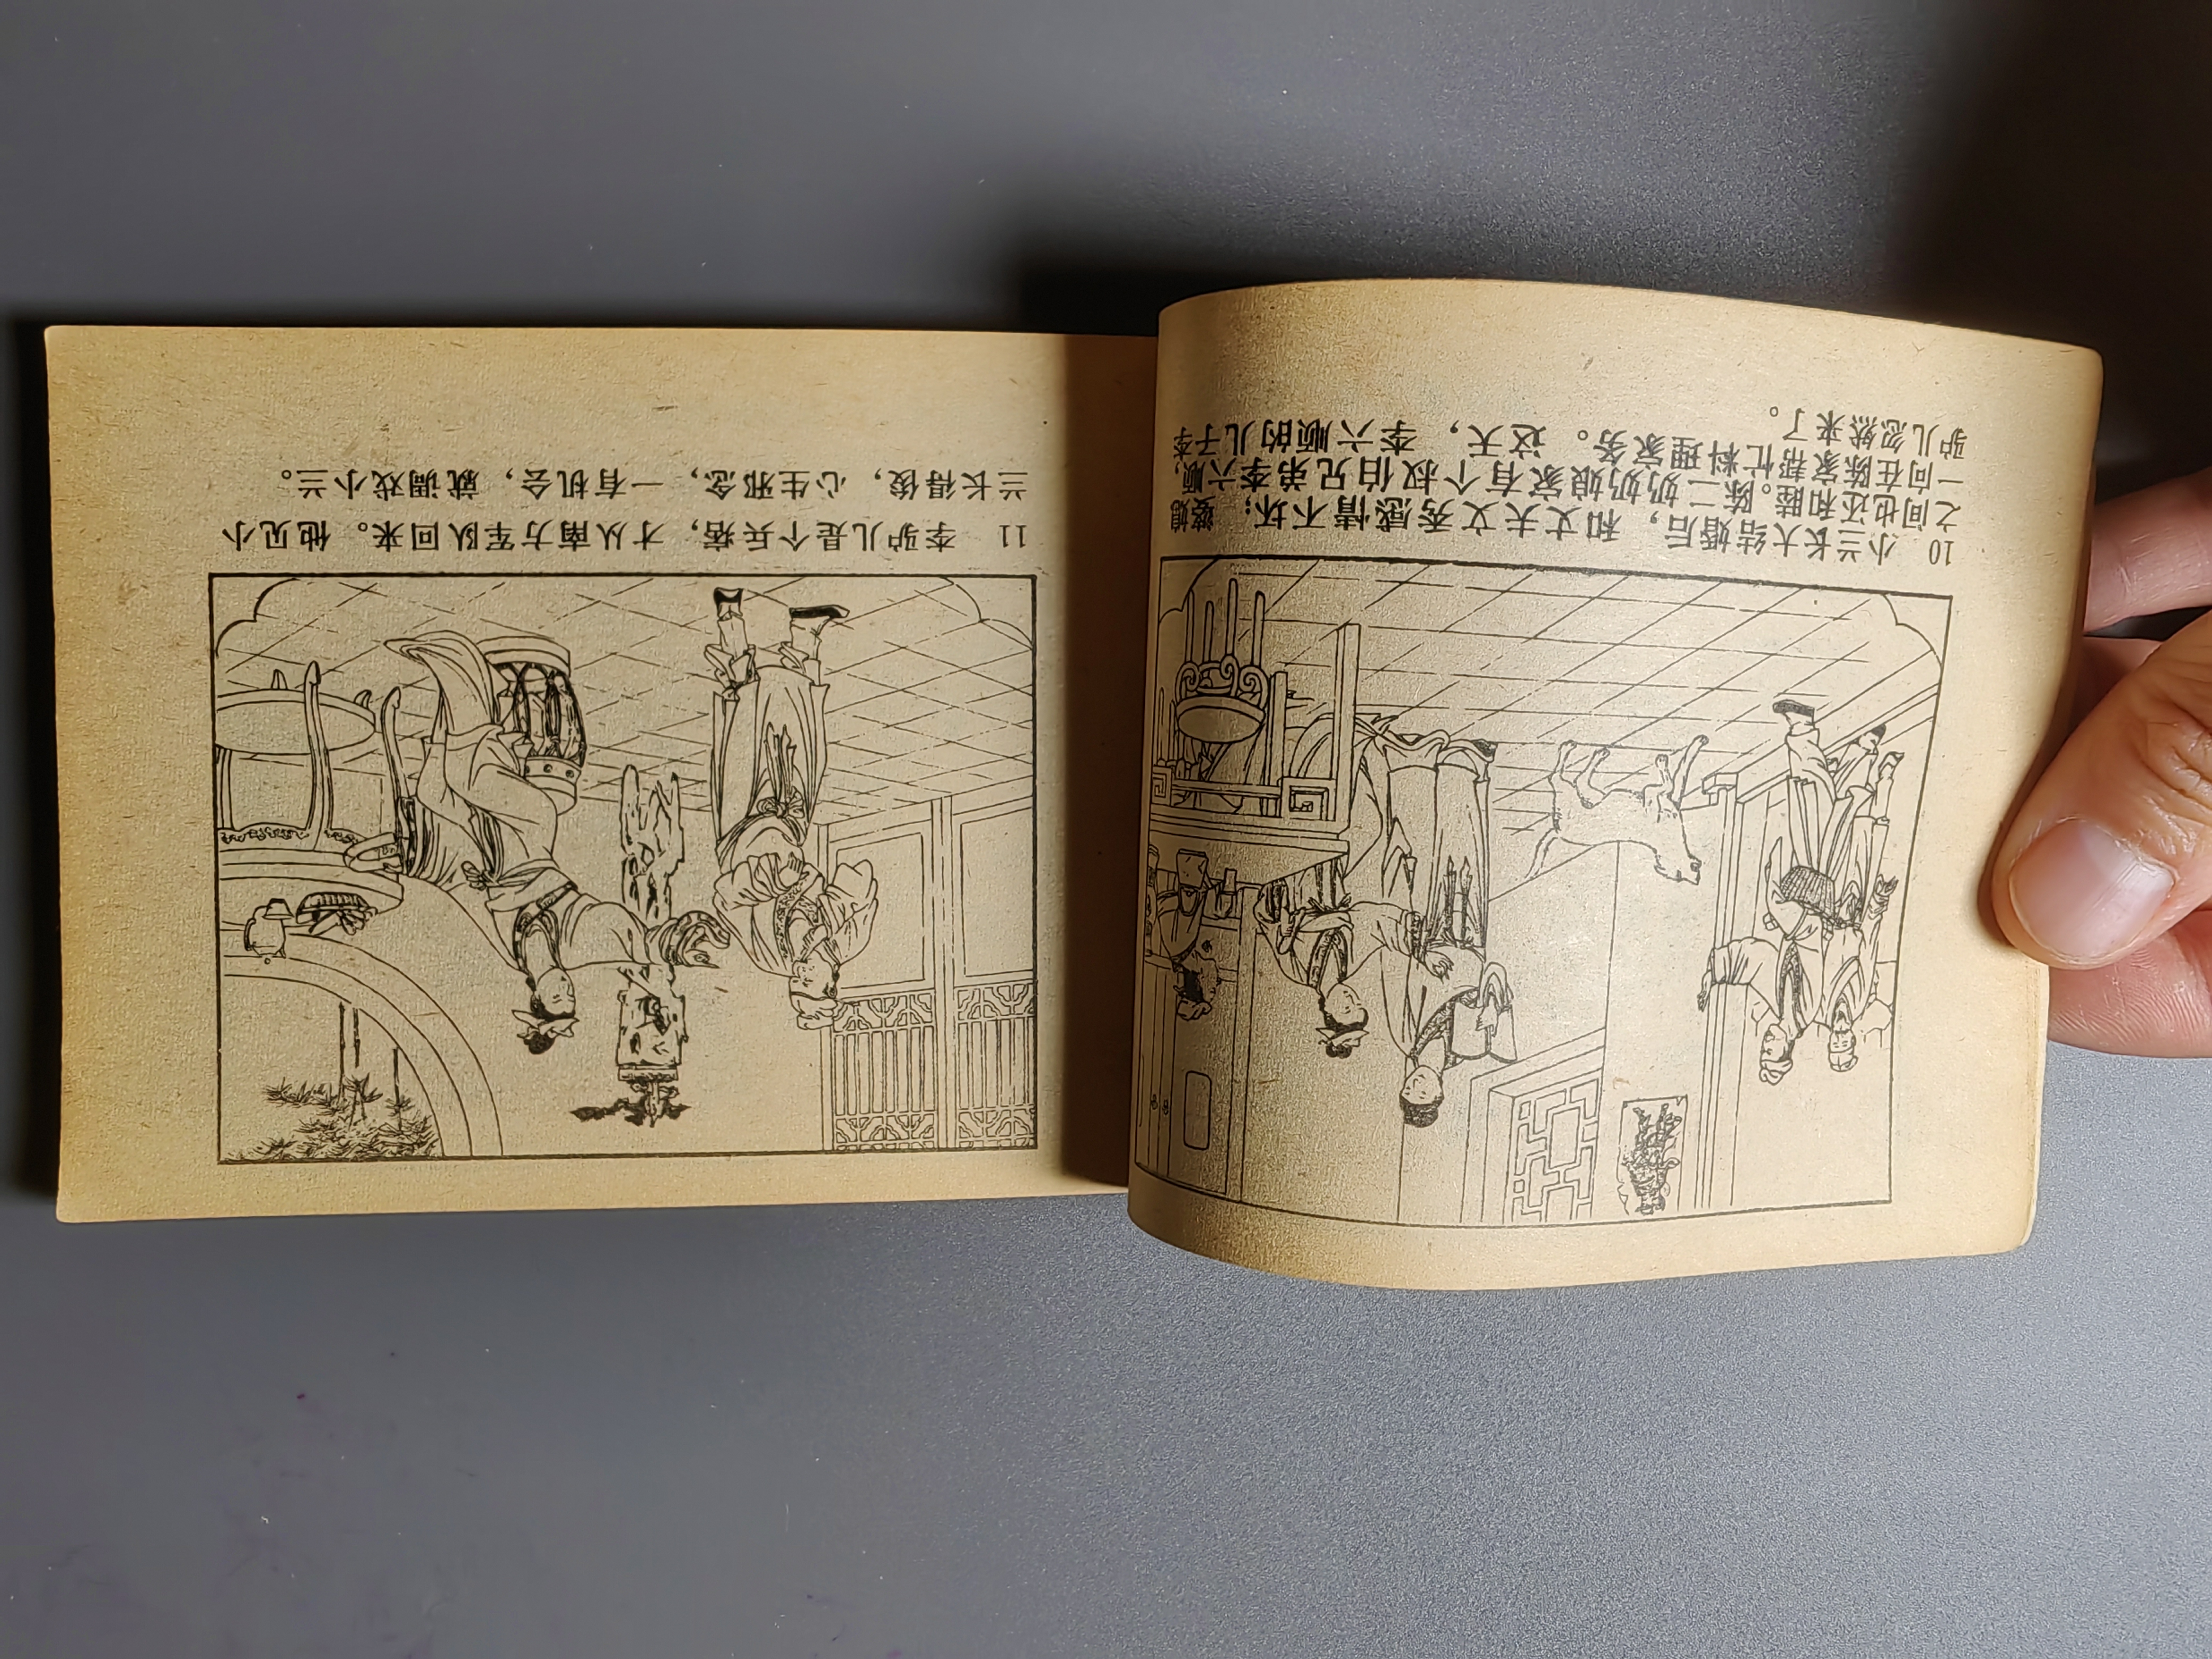 10 小兰长大结婚后，和丈夫文秀感情不坏；婆媳
之间也还和睦。陈二奶奶娘家有个叔伯兄弟李六顺，
一向在陈家帮忙料理家务。这天，李六顺的儿子李
驴儿忽然来了。
11 李驴儿是个兵痞，才从南方军队回来。他见小
兰长得俊，心生邪念，一有机会，就调戏小兰。